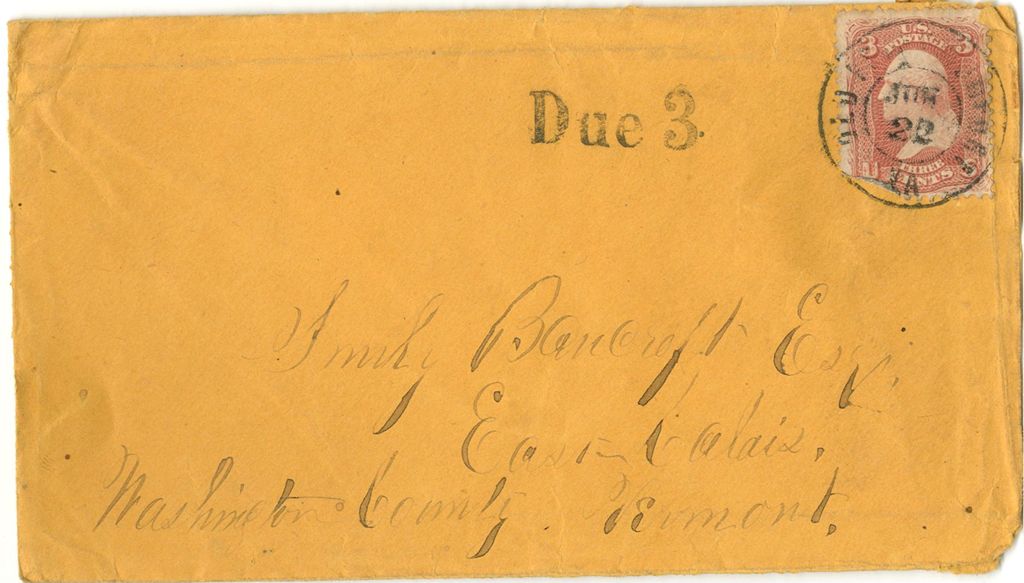 3 U.S. 3
POSTAGE
JUN
22
IA
THREE
CENTS
Due 3
Bancroft Esq.
East Calais.
Washington County Vermont.